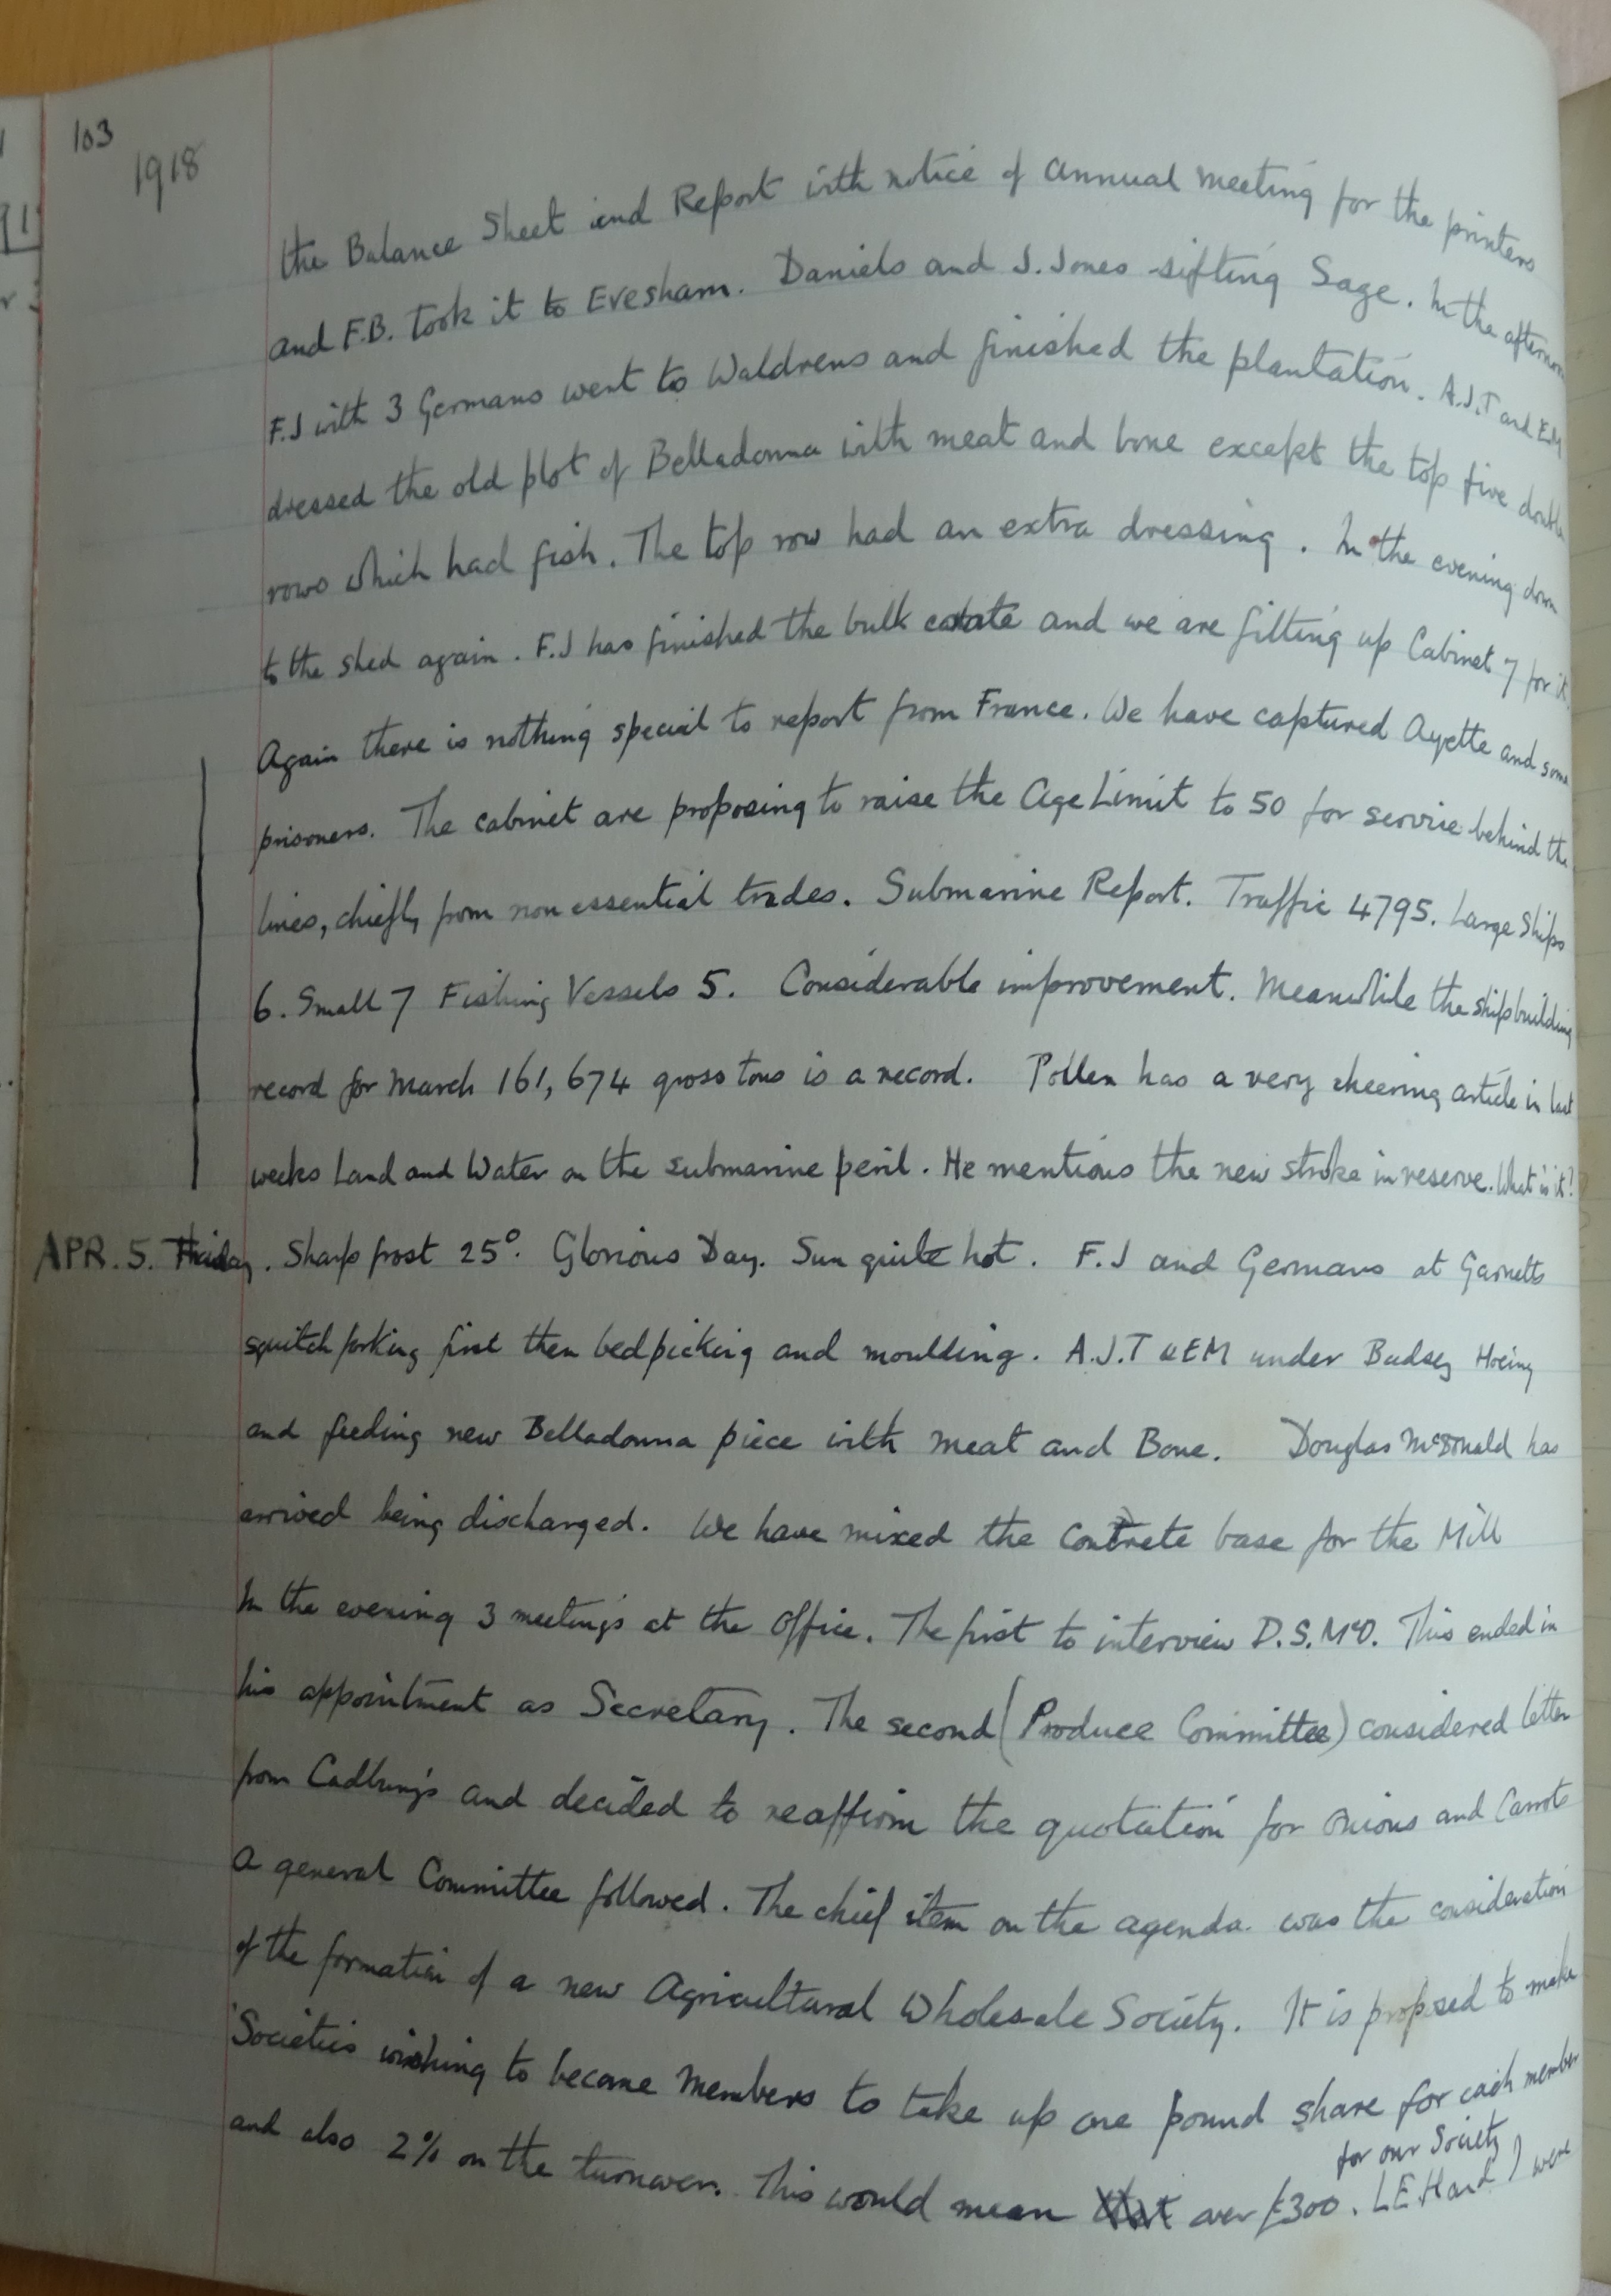 103
1918
the Balance Sheet and Report with notice of annual meeting for the printers
and F.B. took it to Evesham. Daniels and J. Jones sifting Sage. In the afternoon
F.J with 3 Germans went to Waldrens and finished the plantation. A.J.T and E.M
dressed the old plot of Belladonna with meat and bone except the top five double
rows which had fish. The top row had an extra dressing. In the evening down
to the shed again. F.J has finished the bulk and we are fitting up Cabinet 7 for it.
Again there is nothing special to report from France. We have captured Ayette and some
prisoners. The cabinet are proposing to raise the Age Limit to 50 for service behind the
lines, chiefly from non essential trades. Submarine Report. Traffic 4795. Large Ships
6. Small 7 Fishing Vessels 5. Considerable improvement. Meanwhile the shipbuilding
record for March 161,674 gross tons is a record. Pollen has a very cheering article in last
weeks Land and Water on the submarine peril. He mentions the new stroke in reserve. What is it?
APR. 5. Friday. Sharp frost 25°. Glorious Day. Sun quite hot. F.J and Germans at Garnetts
squitch forking first then bedpicking and moulding. A.J.T & EM under Badsey Hoeing
and feeding new Belladonna piece with meat and Bone. Douglas McDonald has
arrived being discharged. We have mixed the Concrete base for the Mill
In the evening 3 meetings at the office. The first to interview D.S.McD. This ended in
his appointment as Secretary. The second (Produce Committee) considered letter
from Cadbury's and decided to reaffirm the quotation for onions and Carrots
A general Committee followed. The chief item on the agenda was the consideration
of the formation of a new Agricultural Wholesale Society. It is proposed to make
Societies wishing to become Members to take up one pound share for each member
for our Society
and also 2% on the turnover. This would mean over £300. L E Hard I were